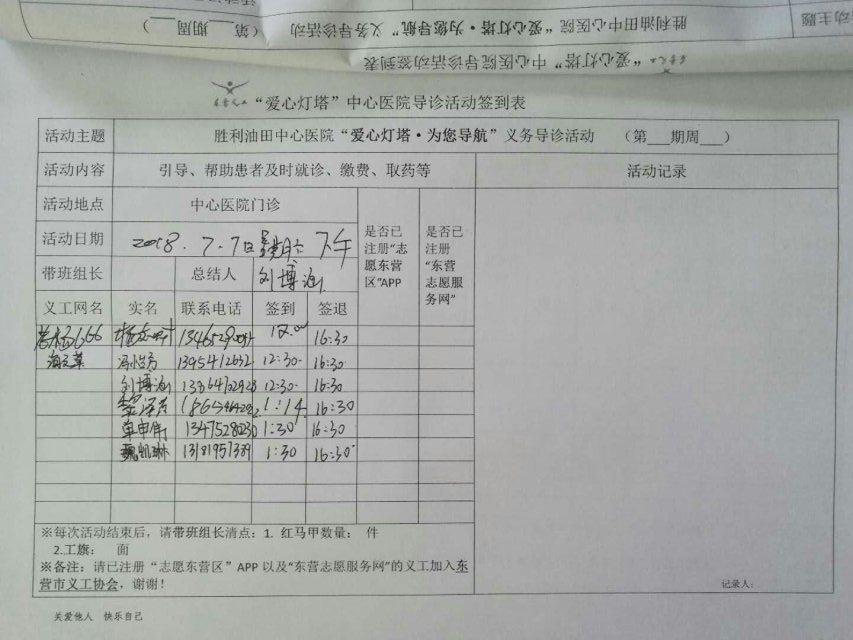 胜利油田中心医院“爱心灯塔·为您导航”义务导诊活动 （第___期周___）
“爱心灯塔”中心医院导诊活动签到表
“爱心灯塔”中心医院导诊活动签到表
活动主题 胜利油田中心医院“爱心灯塔·为您导航”义务导诊活动 （第___期周___）
活动内容 引导、帮助患者及时就诊、缴费、取药等 活动记录
活动地点 中心医院门诊
活动日期 2018.7.7日星期六 下午
是否已注册“志愿东营区”APP
是否已注册“东营志愿服务网”
带班组长 总结人 刘博涵
义工网名 实名 联系电话 签到 签退
12:00 16:30
海之草 1395412632 12:30 16:30
刘博涵 12:30 16:30
1:14 16:30
1:30 16:30
魏凯琳 1:30 16:30
※每次活动结束后，请带班组长清点：1. 红马甲数量： 件
2.工旗： 面
※备注：请已注册“志愿东营区”APP 以及“东营志愿服务网”的义工加入东
营市义工协会，谢谢！
记录人：
关爱他人 快乐自己